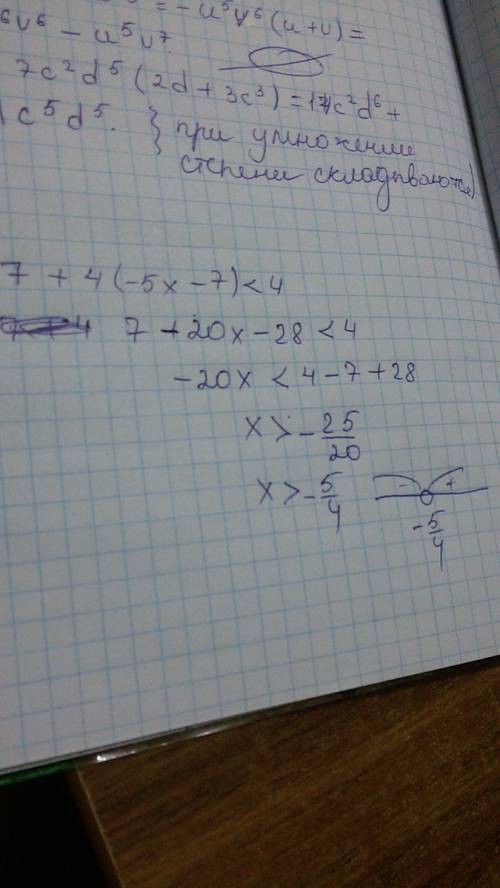 = -u⁵v⁶(u+v) =
⁶v⁶ - u⁵v⁷.
7c²d⁵(2d + 3c³) = 14c²d⁶ +
1c⁵d⁵. } при умножение
степени складываются)
7 + 4(-5x - 7) < 4
7 - 20x - 28 < 4
-20x < 4 - 7 + 28
x > -25/20
x > -5/4 - +
-5/4